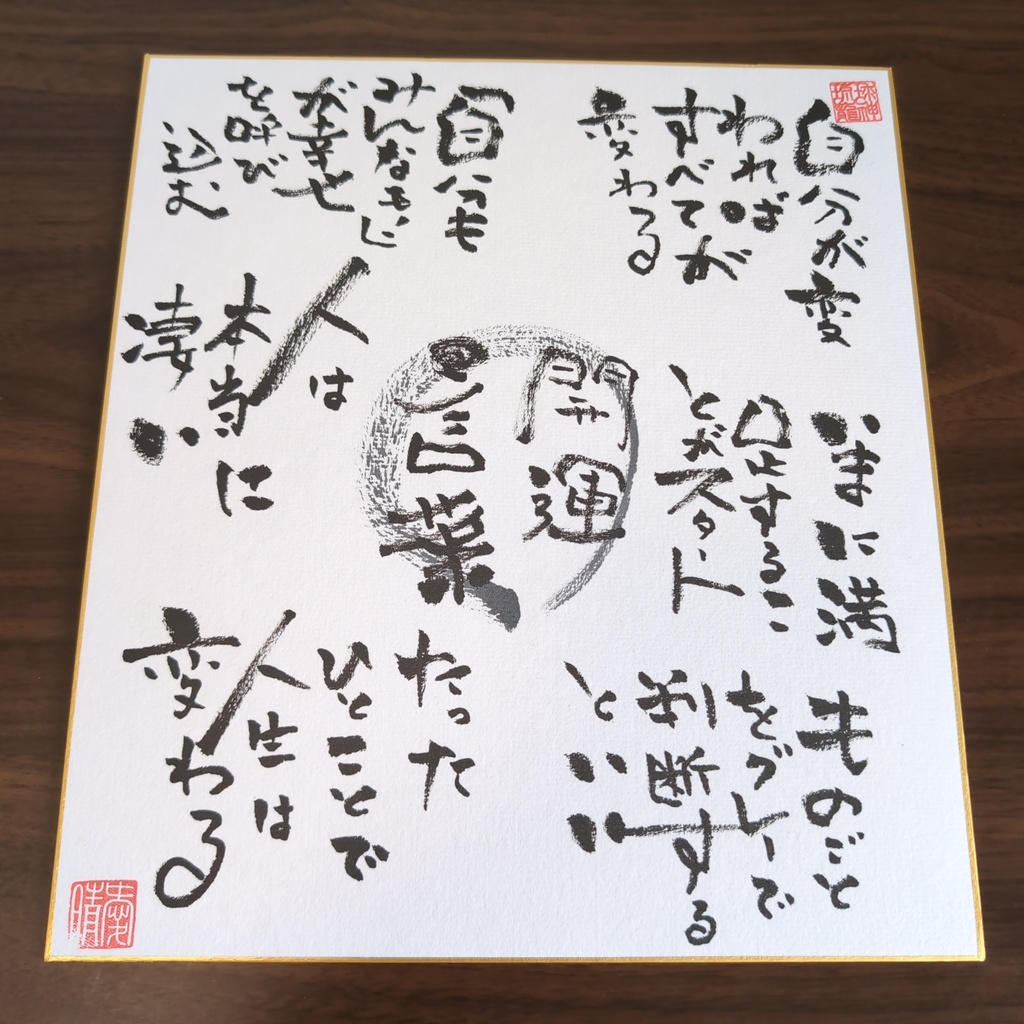 自分が変
われば
すべてが
変わる
いまに満
足するこ
とがスタート
ものごと
をグレーで
判断する
といい
開運
の言葉
「自分も
みんなも」
が幸せ
を呼び
込む
人は
本当に
凄い
たった
ひとことで
人生は
変わる